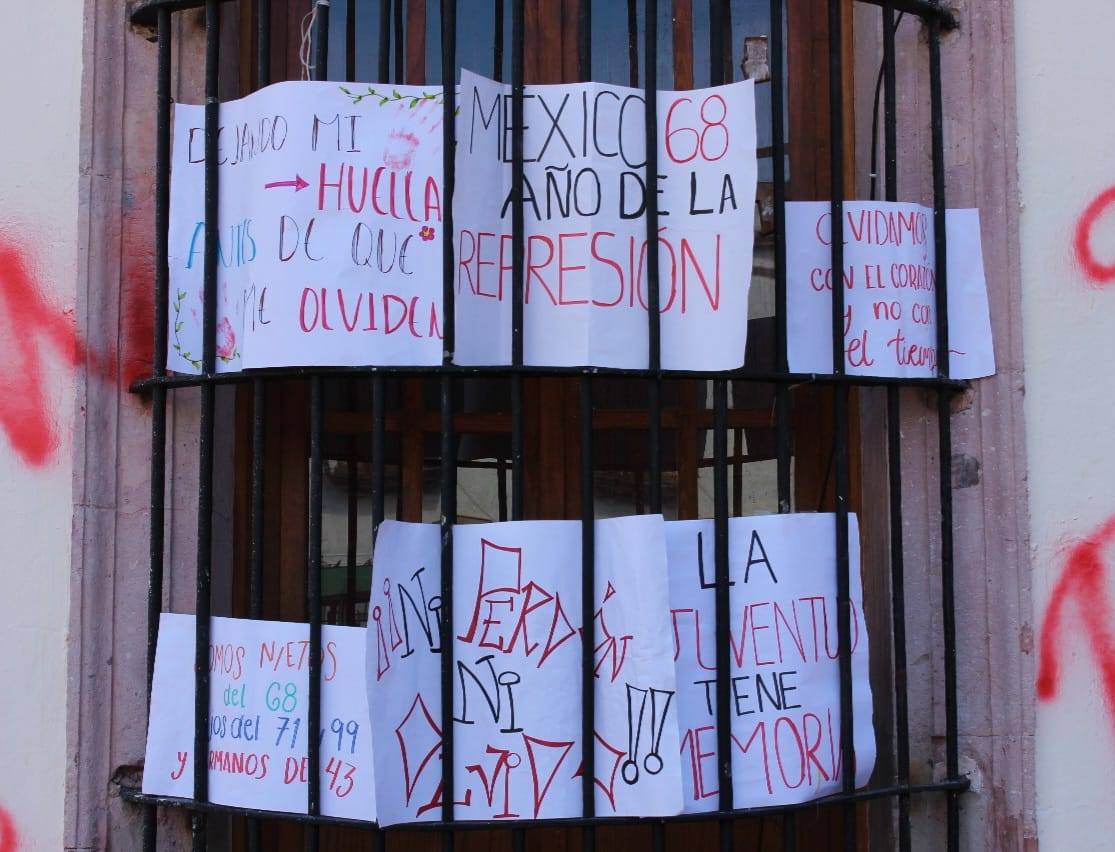 DEJANDO MI
HUELLA
ANTES DE QUE
ME OLVIDEN
MEXICO 68
AÑO DE LA
REPRESIÓN
OLVIDAMOS
CON EL CORAZÓN
y no con
el tiempo
SOMOS NIETOS
del 68
hijos del 71, 99
y HERMANOS DE 43
¡¡Ni PERDÓN
Ni
OLVIDO!!
LA
JUVENTUD
TIENE
MEMORIA